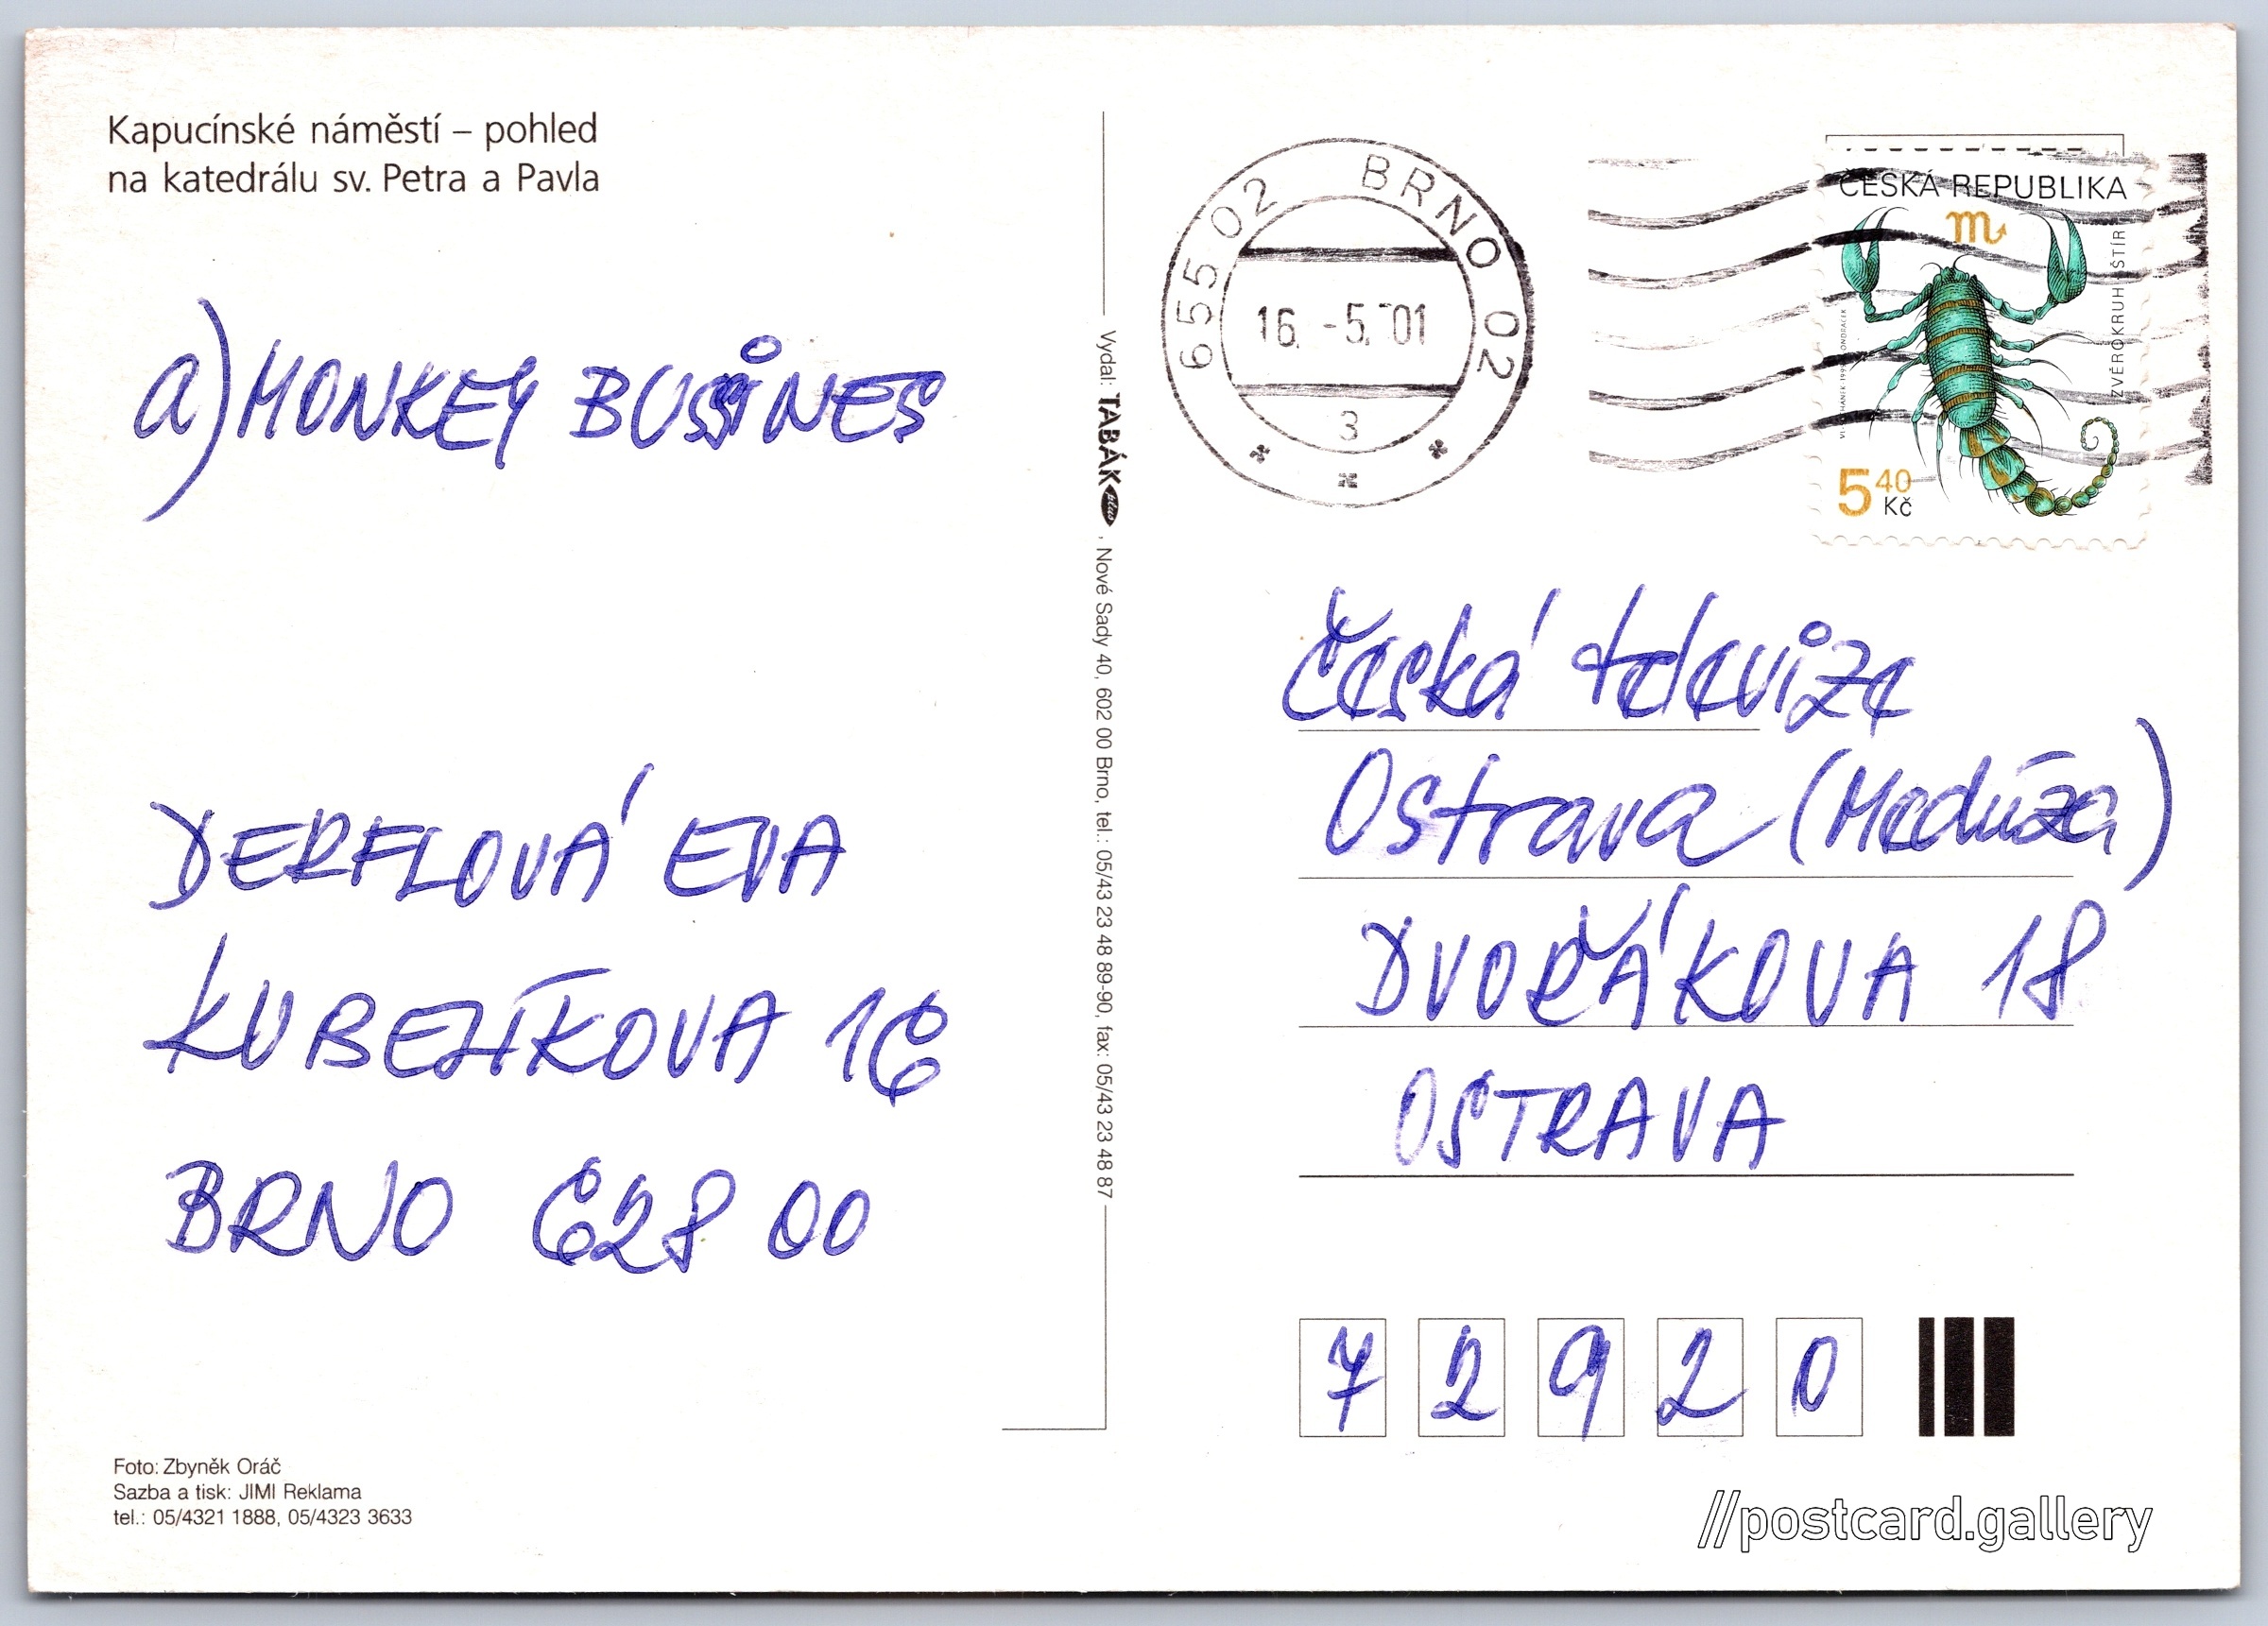 Kapucínské náměstí – pohled
na katedrálu sv. Petra a Pavla
a) MONKEY BUSSINES
DERFLOVÁ EVA
KUBELÍKOVA 16
BRNO 628 00
Foto: Zbyněk Oráč
Sazba a tisk: JIMI Reklama
tel.: 05/4321 1888, 05/4323 3633
Vydal: TABÁK plus, Nové Sady 40, 602 00 Brno, tel.: 05/43 23 48 89-90, fax: 05/43 23 48 87
655 02 BRNO 02
16. -5. 01
3
ČESKÁ REPUBLIKA
ZVĚROKRUH ŠTÍR
5 40
Kč
Česká televize
Ostrava (Medúza)
DVOŘÁKOVA 18
OSTRAVA
7 2 9 2 0
//postcard.gallery